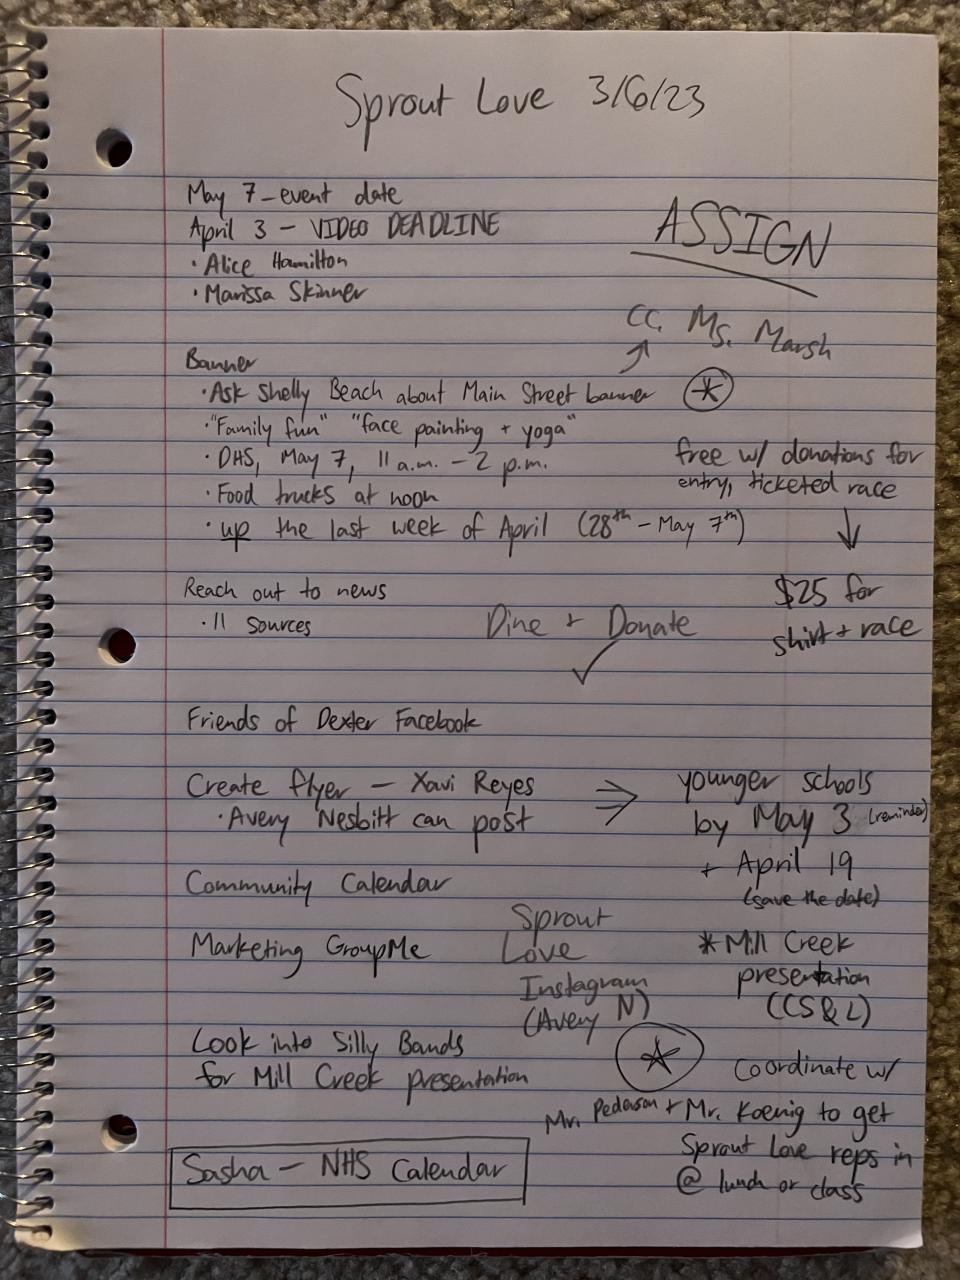 Sprout Love 3/6/23
May 7 - event date
April 3 - VIDEO DEADLINE
· Alice Hamilton
· Marissa Skinner
ASSIGN
CC. Ms. Marsh
Banner
· Ask Shelly Beach about Main Street banner *
· "Family fun" "face painting + yoga"
· DHS, May 7, 11 a.m. - 2 p.m.
· Food trucks at noon
· up the last week of April (28th - May 7th)
free w/ donations for
entry, ticketed race
↓
$25 for
shirt + race
Reach out to news
· 11 sources
Dine + Donate
✓
Friends of Dexter Facebook
Create flyer — Xavi Reyes ⇒
· Avery Nesbitt can post
younger schools
by May 3 (reminder)
+ April 19
(save the date)
Community Calendar
Marketing GroupMe
Sprout
Love
Instagram
(Avery N)
* Mill Creek
presentation
(CS & L)
Look into Silly Bands
for Mill Creek presentation
* Coordinate w/
Mr. Pederson + Mr. Koenig to get
Sprout Love reps in
@ lunch or class
Sasha — NHS Calendar